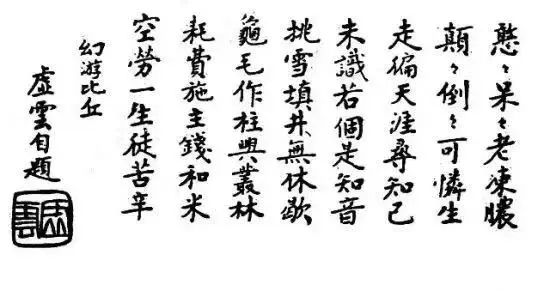 憨々呆々老凍膿
顛々倒々可憐生
走徧天涯尋知己
未識若個是知音
挑雪填井無休歇
龜毛作柱興叢林
耗費施主錢和米
空勞一生徒苦辛
幻游比丘
虛雲自題